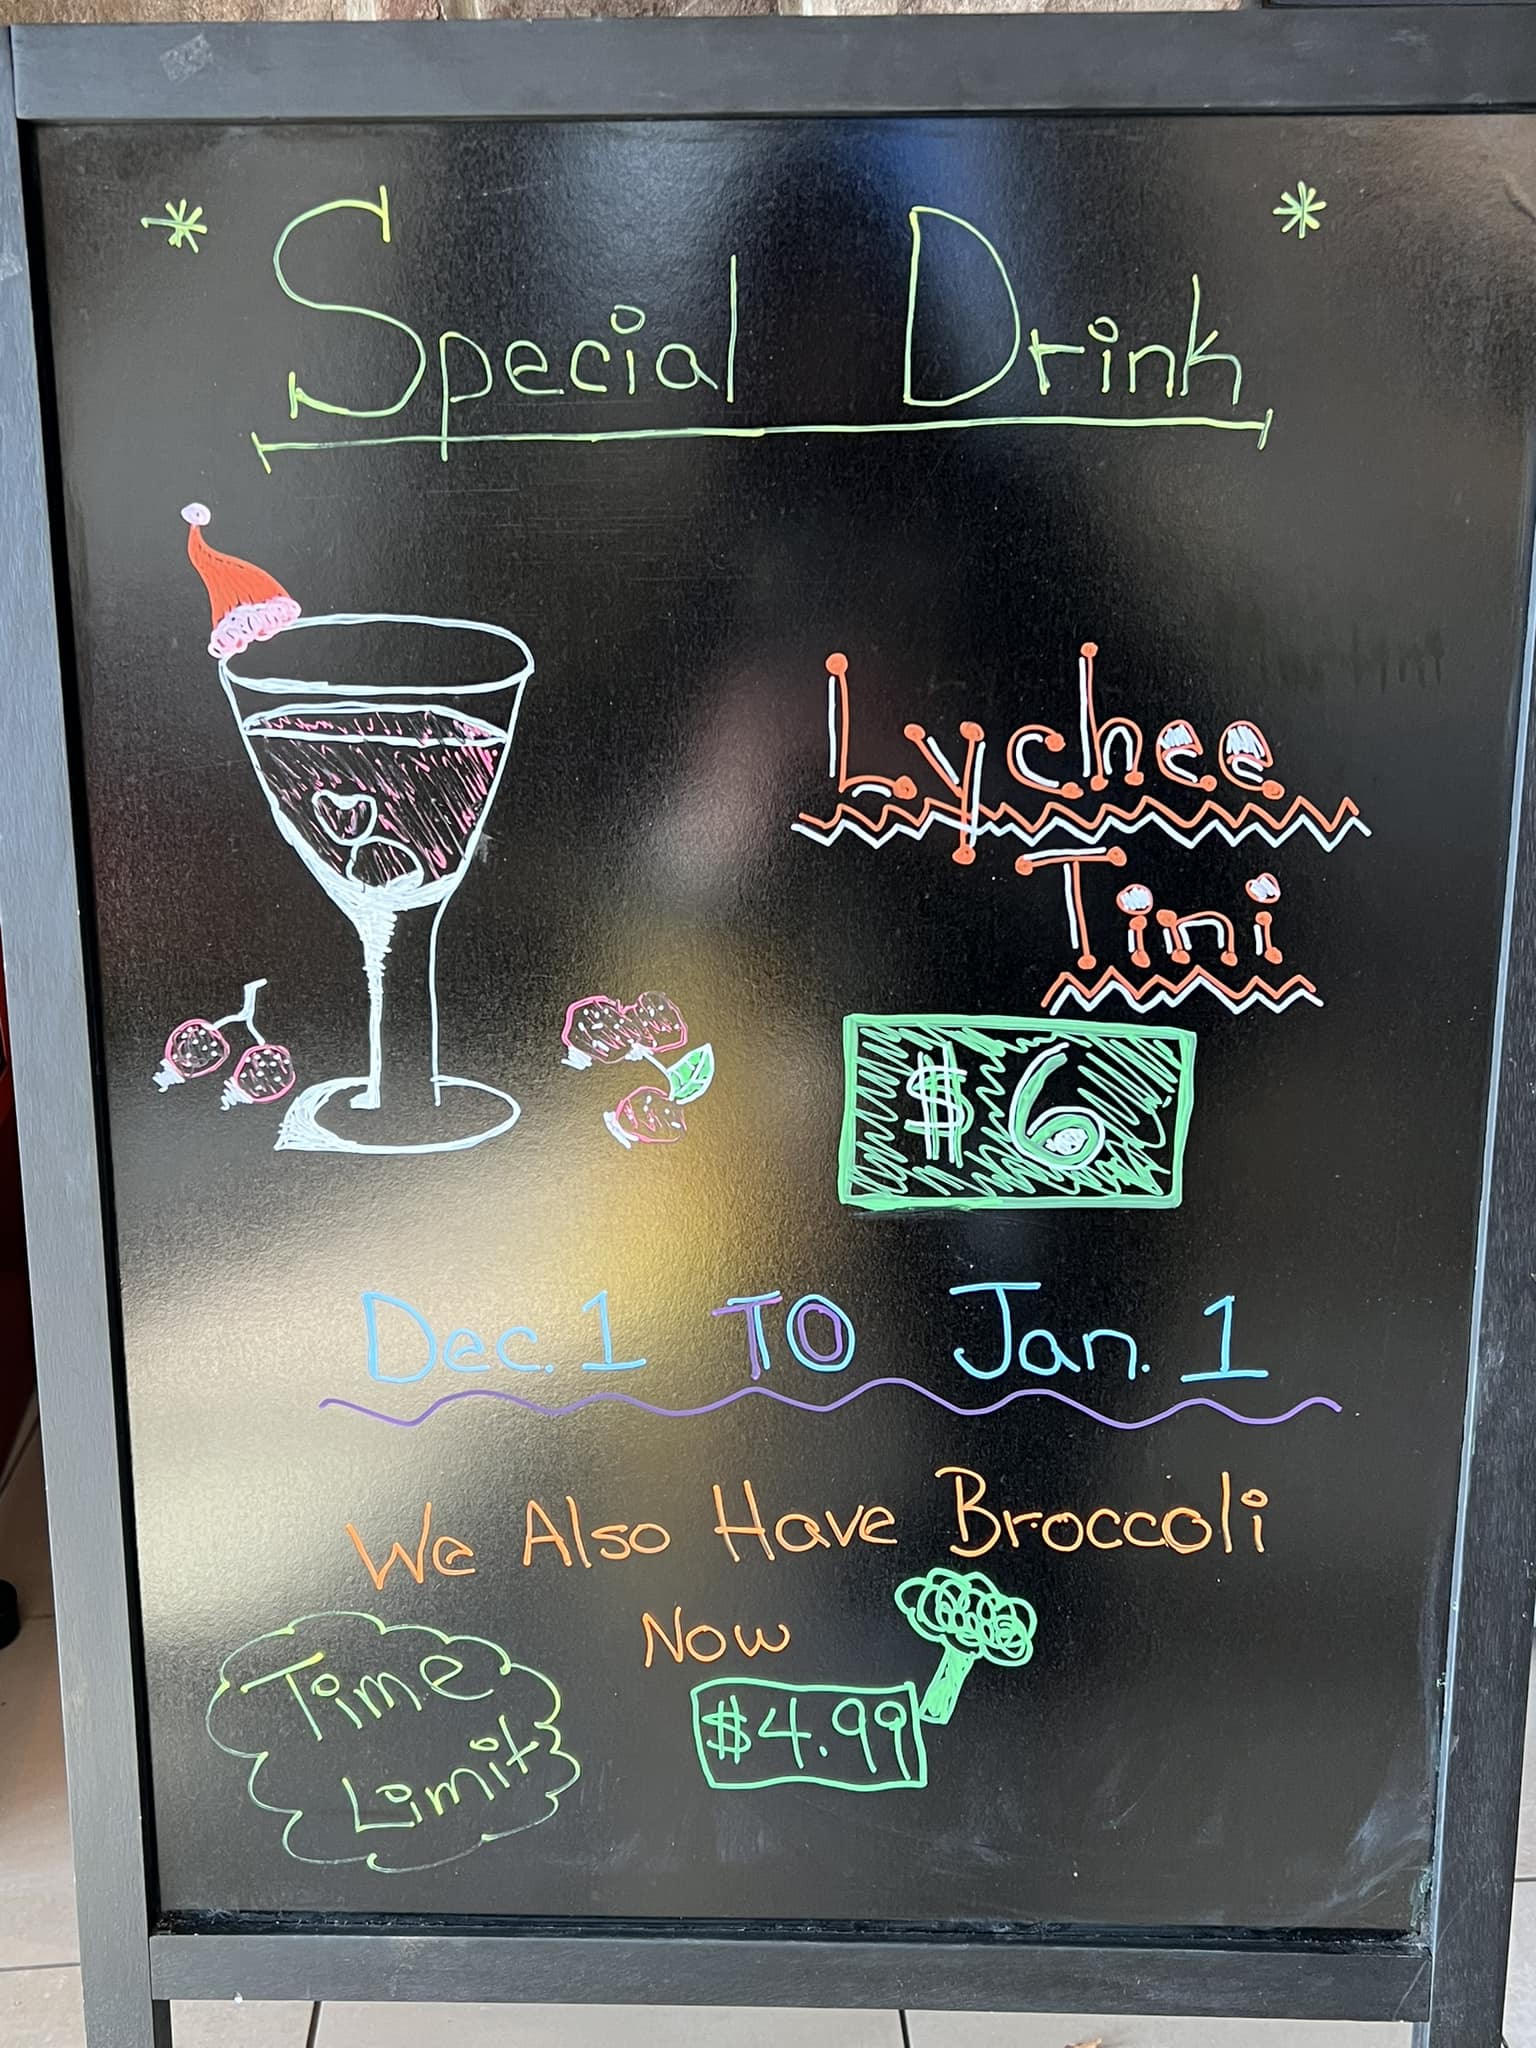 * Special Drink *
Lychee
Tini
$6
Dec. 1 TO Jan. 1
We Also Have Broccoli
Now
$4.99
Time
Limit